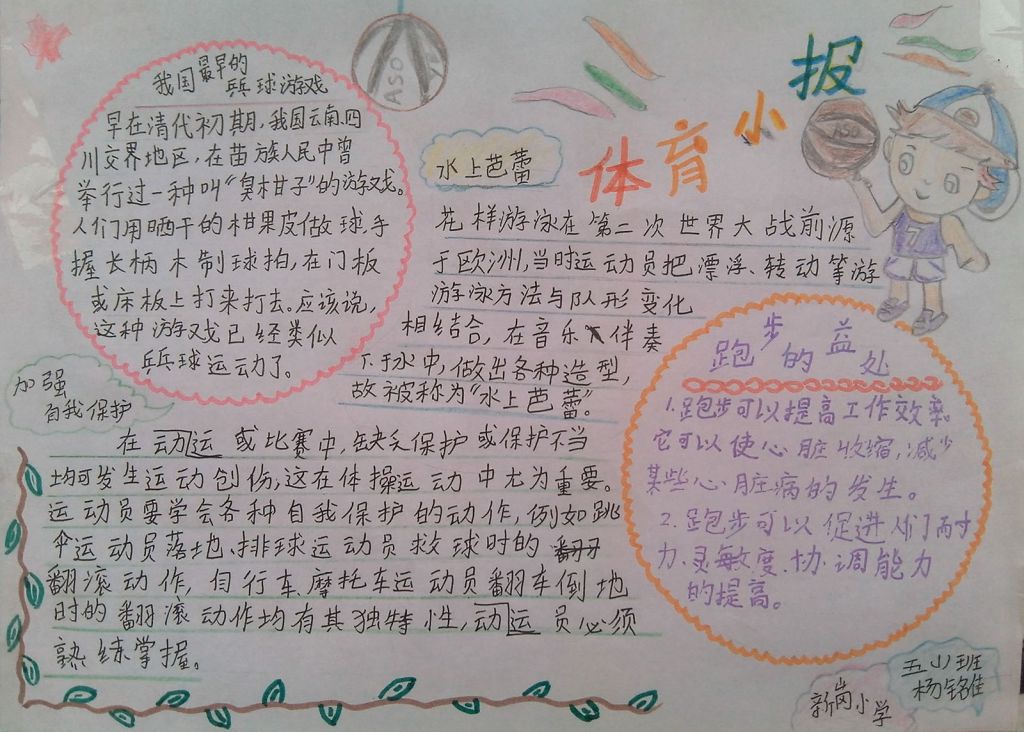 体育小报
ASO
我国最早的
乒球游戏
早在清代初期,我国云南四
川交界地区,在苗族人民中曾
举行过一种叫“臭柑子”的游戏。
人们用晒干的柑果皮做球,手
握长柄木制球拍,在门板
或床板上打来打去。应该说,
这种游戏已经类似
乒球运动了。
水上芭蕾
花样游泳在第二次世界大战前源
于欧洲,当时运动员把漂浮、转动等游
游泳方法与队形变化
相结合,在音乐伴奏
下于水中,做出各种造型,
故被称为“水上芭蕾”。
7
跑步的益处
1.跑步可以提高工作效率。
它可以使心脏收缩,减少
某些心脏病的发生。
2.跑步可以促进人们耐
力、灵敏度、协调能力
的提高。
加强
自我保护
在动运或比赛中,缺乏保护或保护不当
均可发生运动创伤,这在体操运动中尤为重要。
运动员要学会各种自我保护的动作,例如跳
伞运动员落地、排球运动员救球时的
翻滚动作,自行车、摩托车运动员翻车倒地
时的翻滚动作均有其独特性,动运员必须
熟练掌握。
新岗小学